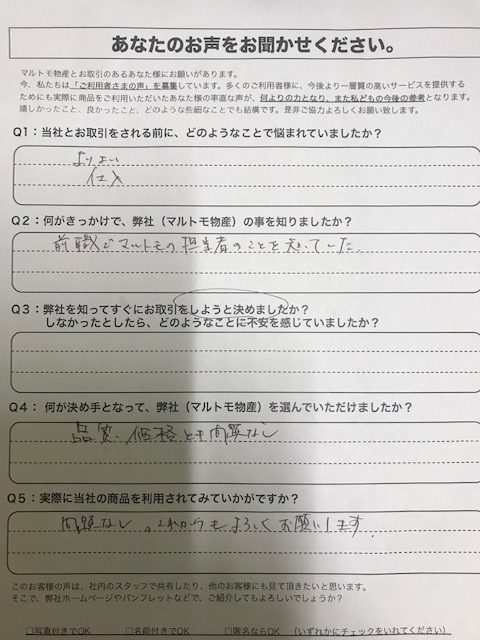 あなたのお声をお聞かせください。
マルトモ物産とお取引のあるあなた様にお願いがあります。
今、私たちは「ご利用者さまの声」を募集しています。多くのご利用者様に、今後より一層質の高いサービスを提供する
ためにも実際に商品をご利用いただいたあなた様の率直な声が、何よりの力となり、また私どもの今後の参考となります。
嬉しかったこと、良かったこと、どのような些細なことでも結構です。是非ご協力よろしくお願い致します。
Q1：当社とお取引をされる前に、どのようなことで悩まれていましたか？
よりよい
仕入
Q2：何がきっかけで、弊社（マルトモ物産）の事を知りましたか？
前職でマルトモの担当者のことを知っていた。
Q3：弊社を知ってすぐにお取引をしようと決めましたか？
しなかったとしたら、どのようなことに不安を感じていましたか？
Q4：何が決め手となって、弊社（マルトモ物産）を選んでいただけましたか？
品質、価格とも問題なし
Q5：実際に当社の商品を利用されてみていかがですか？
問題なし。これからもよろしくお願いします。
このお客様の声は、社内のスタッフで共有したり、他のお客様にも見て頂きたいと思います。
そこで、弊社ホームページやパンフレットなどで、ご紹介してもよろしいでしょうか？
□写真付きでOK □名前付きでOK □匿名ならOK （いずれかにチェックをいれてください）